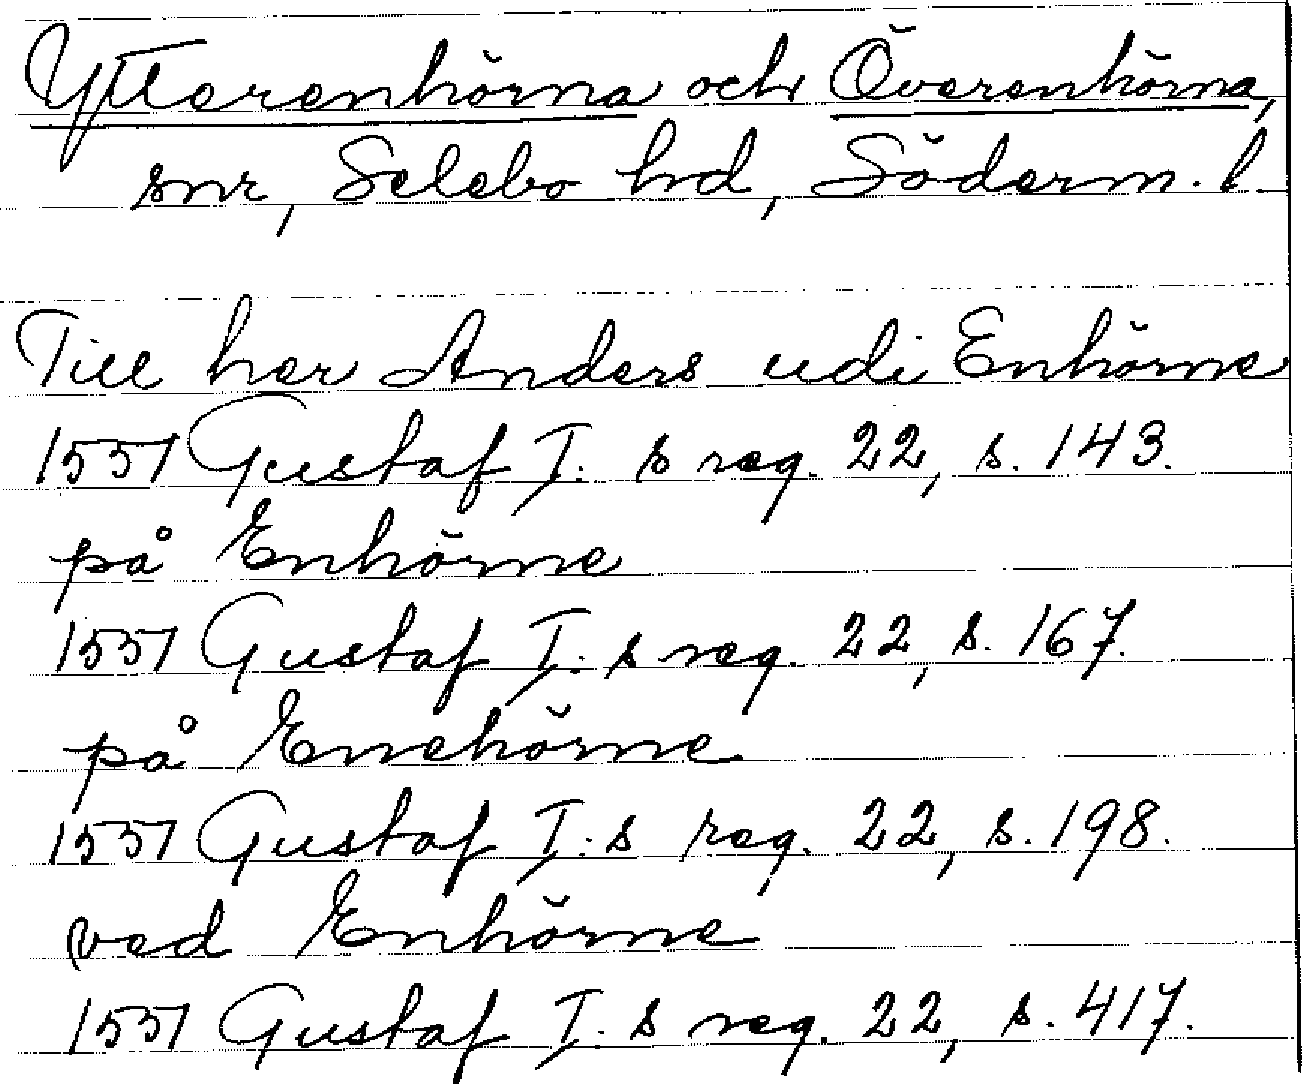 Ytterenhörna och Överenhörna,
snr, Selebo hd, Söderm. l.
Till her Anders udi Enhörne
1551 Gustaf I: s reg. 22, s. 143.
på Enhörne
1551 Gustaf I: s reg. 22, s. 167.
på Enehörne
1551 Gustaf I: s reg. 22, s. 198.
ved Enhörne
1551 Gustaf I: s reg. 22, s. 417.